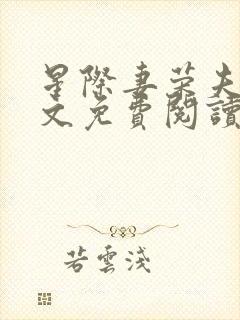 星際妻榮夫
文免費閱讀
若雲淺